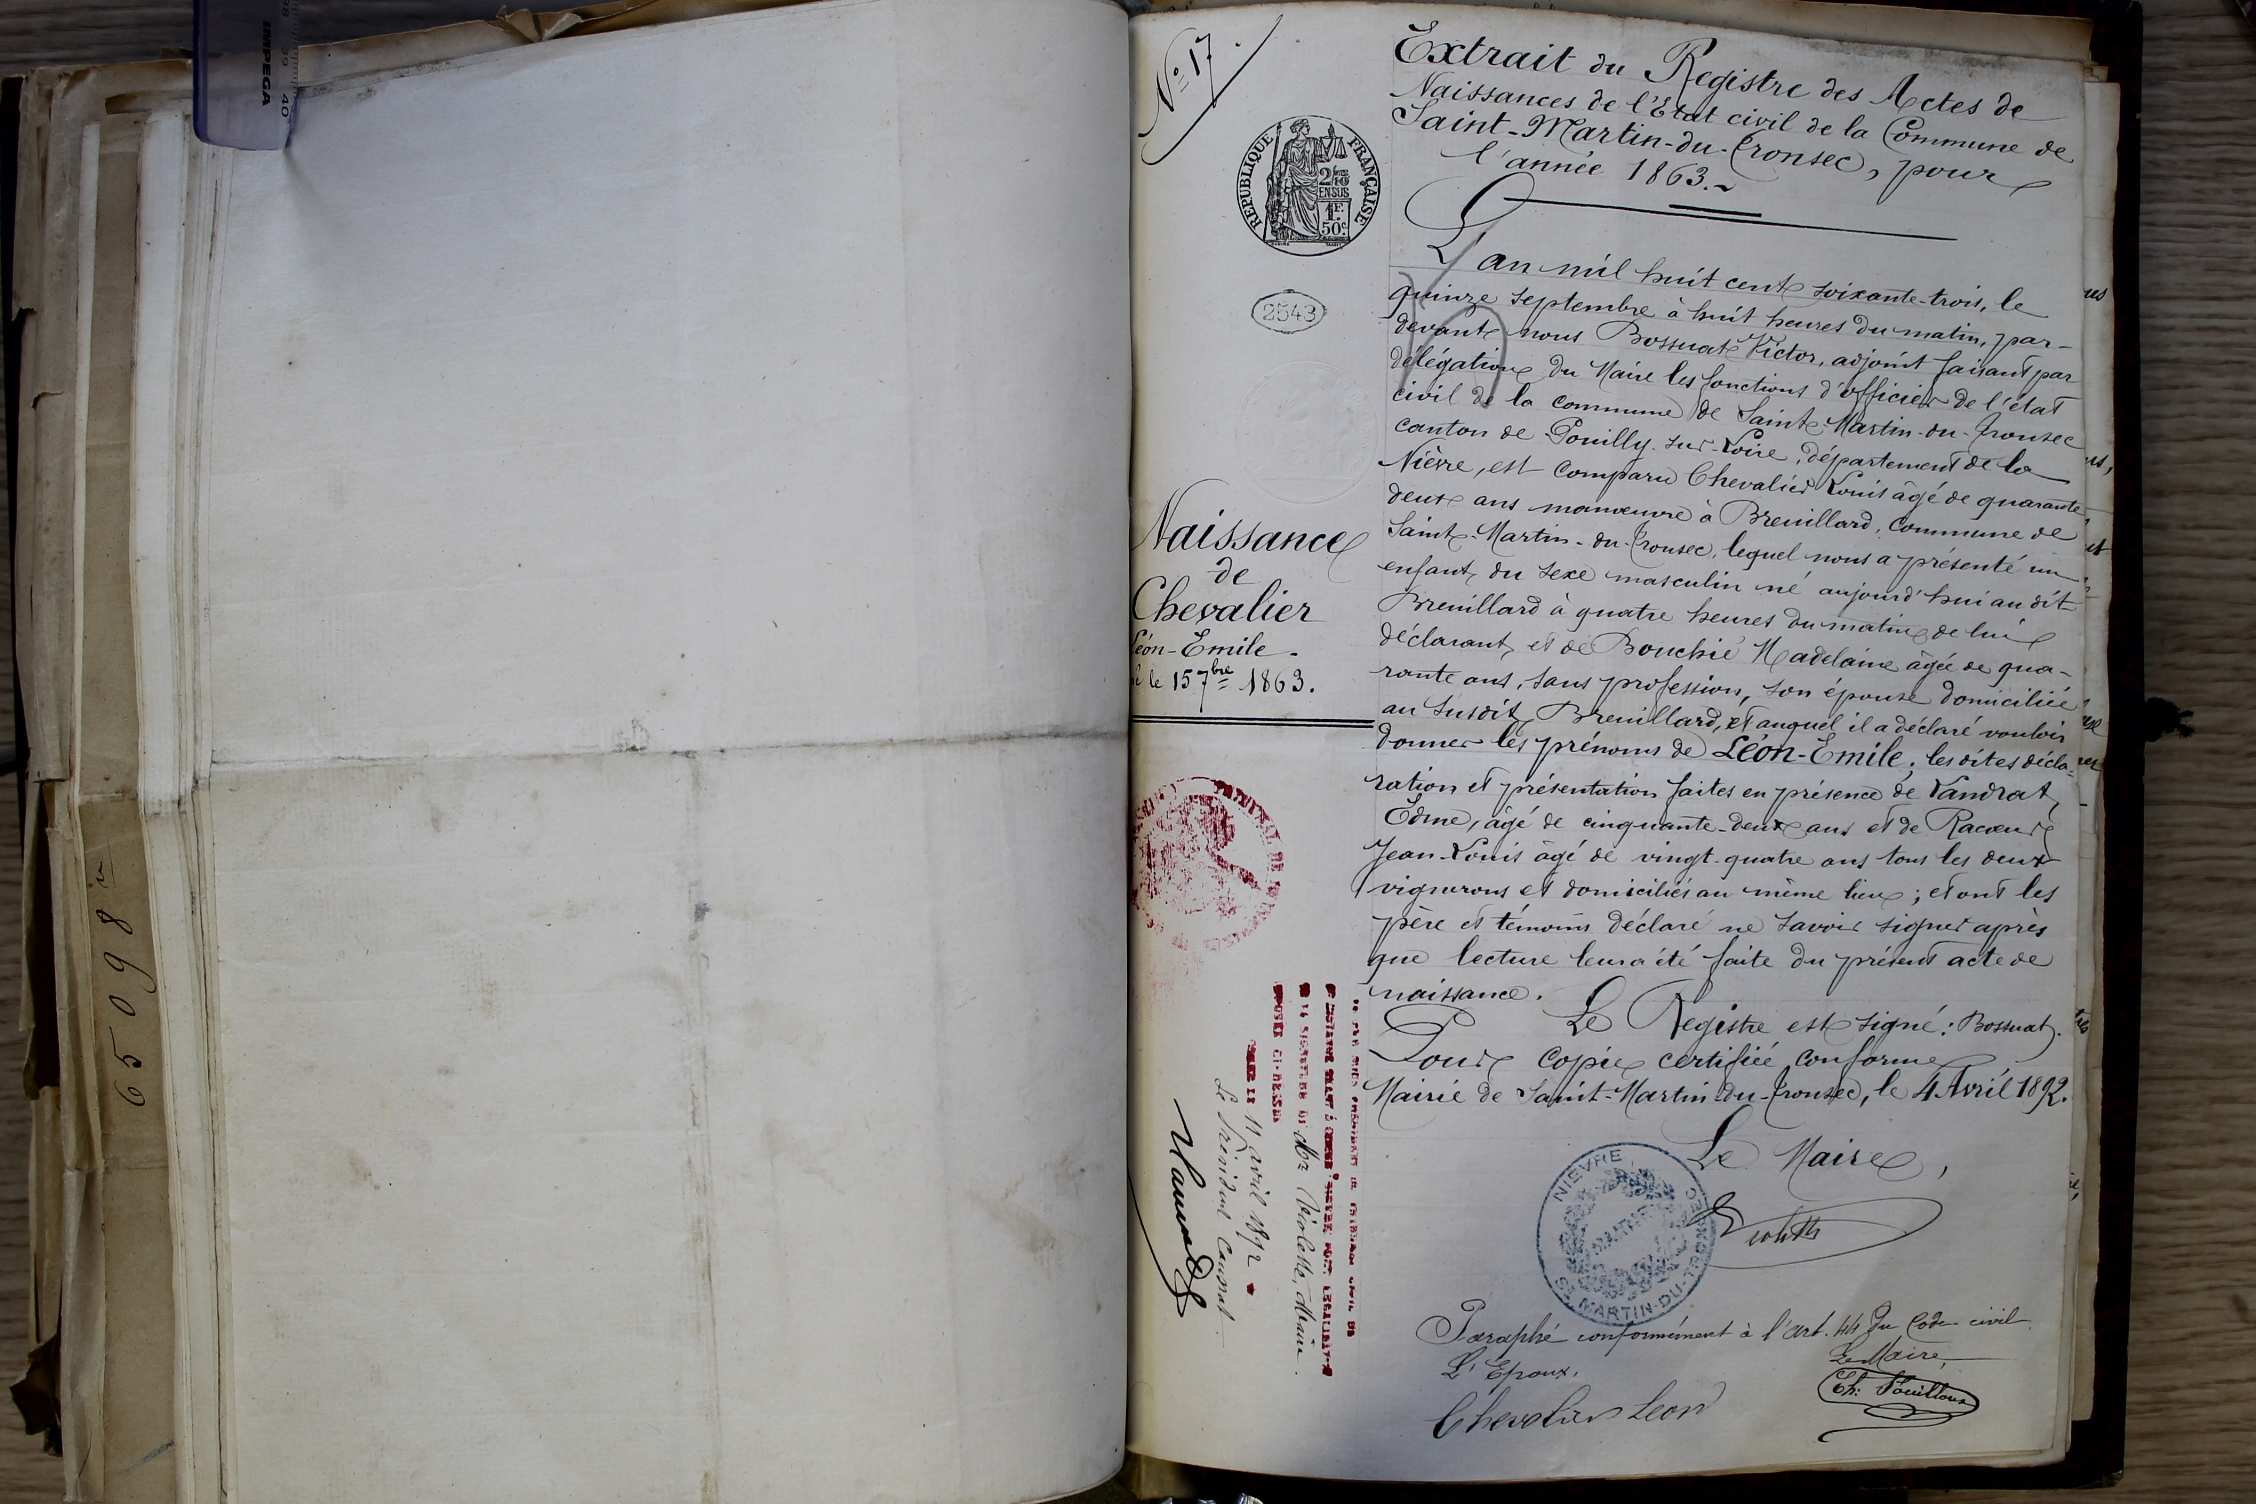 INPEGA
98 39 40
65098
N° 17
Extrait du Registre des Actes de
Naissances de l'Etat civil de la Commune de
Saint-Martin-du-Tronsec, pour
l'année 1863.
REPUBLIQUE FRANÇAISE
2/10
EN SUS
1F.
50c.
2543
L'an mil huit cent soixante-trois, le
quinze septembre à huit heures du matin, par-
devant nous Bossuat Victor, adjoint faisant par
délégation du Maire les fonctions d'officier de l'état
civil de la commune de Saint-Martin-du-Tronsec
canton de Pouilly-sur-Loire, département de la
Nièvre, est comparu Chevalier Louis âgé de quarante
deux ans manœuvre à Breuillard, commune de
Saint-Martin-du-Tronsec, lequel nous a présenté un
enfant du sexe masculin né aujourd'hui au dit
Breuillard à quatre heures du matin de lui
déclarant et de Bouchié Madelaine âgée de qua-
rante ans, sans profession, son épouse domiciliée
au susdit Breuillard, et auquel il a déclaré vouloir
donner les prénoms de Léon-Emile; les dites décla-
ration et présentation faites en présence de Vandrat
Edme, âgé de cinquante-deux ans et de Racœur
Jean-Louis âgé de vingt-quatre ans tous les deux
vignerons et domiciliés au même lieu; et ont les
père et témoins déclaré ne savoir signer après
que lecture leur a été faite du présent acte de
naissance.
Le Registre est signé: Bossuat.
Pour copie certifiée conforme
Mairie de Saint-Martin-du-Tronsec, le 4 Avril 1892.
Le Maire,
NIEVRE
MAIRIE
ST MARTIN-DU-TRONSEC
Paraphé conformément à l'art. 44 du Code civil
L'Epoux,
Le Maire,
Chevalier Leon
Naissance
de
Chevalier
Léon-Emile.
né le 15 7bre 1863.
TRIBUNAL DE
LA SIGNATURE DE Mr Violette, Maire
APPOSÉE CI-DESSUS
11 avril 1892
Le Président